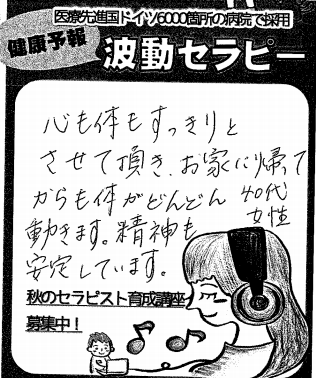 医療先進国ドイツ6000箇所の病院で採用
健康予報
波動セラピー
心も体もすっきりと
させて頂き、お家に帰って
からも体がどんどん
動きます。精神も
安定しています。
40代
女性
秋のセラピスト育成講座
募集中！